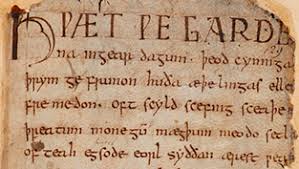 HǷÆT ǷE GARDE
na ingear dagum. þeod cyninga
þrym ge frunon huða æþelingas elle
fremedon. oft scyld scefing sceaþe
þreatum monegū mægþum meodo setl
of teah egsode eorl syððan ærest